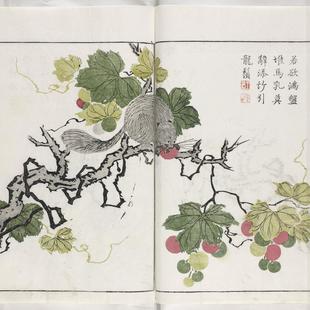 若欲滿盤
堆馬乳莫
辭添竹引
龍鬚